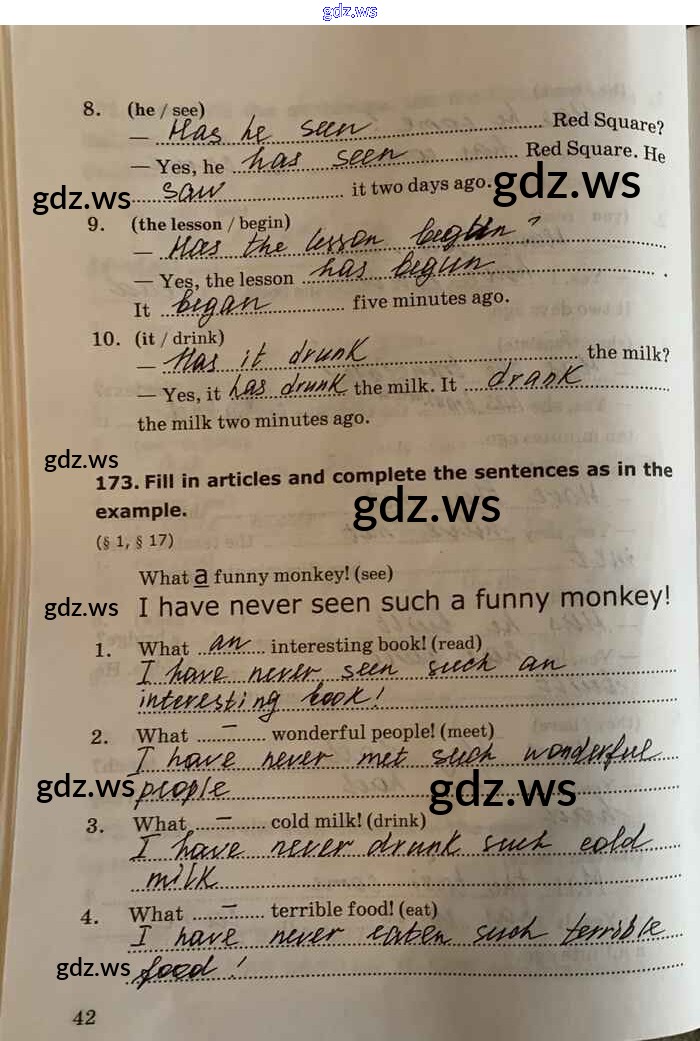 gdz.ws
8. (he / see)
— Has he seen Red Square?
— Yes, he has seen Red Square. He
gdz.ws saw it two days ago. gdz.ws
9. (the lesson / begin)
— Has the lesson begun?
— Yes, the lesson has begun.
It began five minutes ago.
10. (it / drink)
— Has it drunk the milk?
— Yes, it has drunk the milk. It drank
the milk two minutes ago.
gdz.ws
173. Fill in articles and complete the sentences as in the
example. gdz.ws
(§ 1, § 17)
What a funny monkey! (see)
gdz.ws I have never seen such a funny monkey!
1. What an interesting book! (read)
I have never seen such an
interesting book!
2. What – wonderful people! (meet)
I have never met such wonderful
gdz.ws people gdz.ws
3. What – cold milk! (drink)
I have never drunk such cold
milk
4. What – terrible food! (eat)
I have never eaten such terrible
gdz.ws food!
42